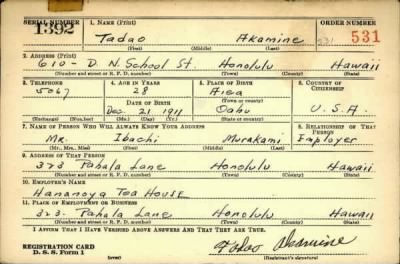 SERIAL NUMBER 1. NAME (Print) ORDER NUMBER
1392 Tadao Akamine 531 531
(First) (Middle) (Last)
2. ADDRESS (Print)
610- D. N. School St. Honolulu Hawaii
(Number and street or R. F. D. number) (Town) (County) (State)
3. TELEPHONE 4. AGE IN YEARS 5. PLACE OF BIRTH 6. COUNTRY OF CITIZENSHIP
5067 28 Aiea
DATE OF BIRTH (Town or county)
Dec. 21 1911 Oahu U.S.A.
(Exchange) (Number) (Mo.) (Day) (Yr.) (State or country)
7. NAME OF PERSON WHO WILL ALWAYS KNOW YOUR ADDRESS 8. RELATIONSHIP OF THAT PERSON
Mr. Murakami Employer
(Mr., Mrs., Miss) (First) (Middle) (Last)
9. ADDRESS OF THAT PERSON
323 Pahala Lane Honolulu Hawaii
(Number and street or R. F. D. number) (Town) (County) (State)
10. EMPLOYER'S NAME
Hananoya Tea House
11. PLACE OF EMPLOYMENT OR BUSINESS
323- Pahala Lane Honolulu Hawaii
(Number and street or R. F. D. number) (Town) (County) (State)
I AFFIRM THAT I HAVE VERIFIED ABOVE ANSWERS AND THAT THEY ARE TRUE.
REGISTRATION CARD
D. S. S. Form 1 Tadao Akamine
(Registrant's signature)